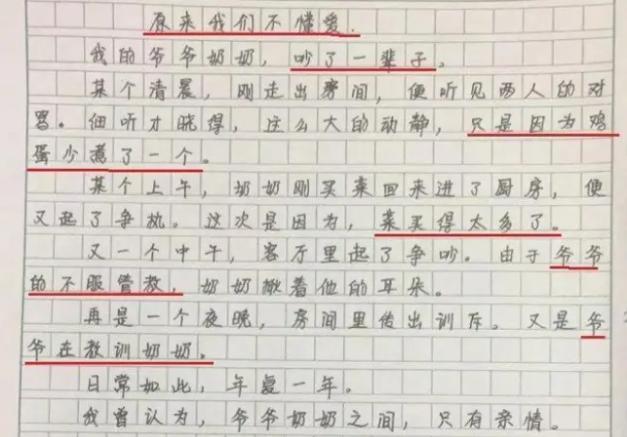 原来我们不懂爱.
我的爷爷奶奶，吵了一辈子。
某个清晨，刚走出房间，便听见两人的对
骂。细听才晓得，这么大的动静，只是因为鸡
蛋少煮了一个。
某个上午，奶奶刚买菜回来进了厨房，便
又起了争执。这次是因为，菜买得太多了。
又一个中午，客厅里起了争吵。由于爷爷
的不服管教，奶奶揪着他的耳朵。
再是一个夜晚，房间里传出训斥。又是爷
爷在教训奶奶。
日常如此，年复一年。
我曾认为，爷爷奶奶之间，只有亲情。